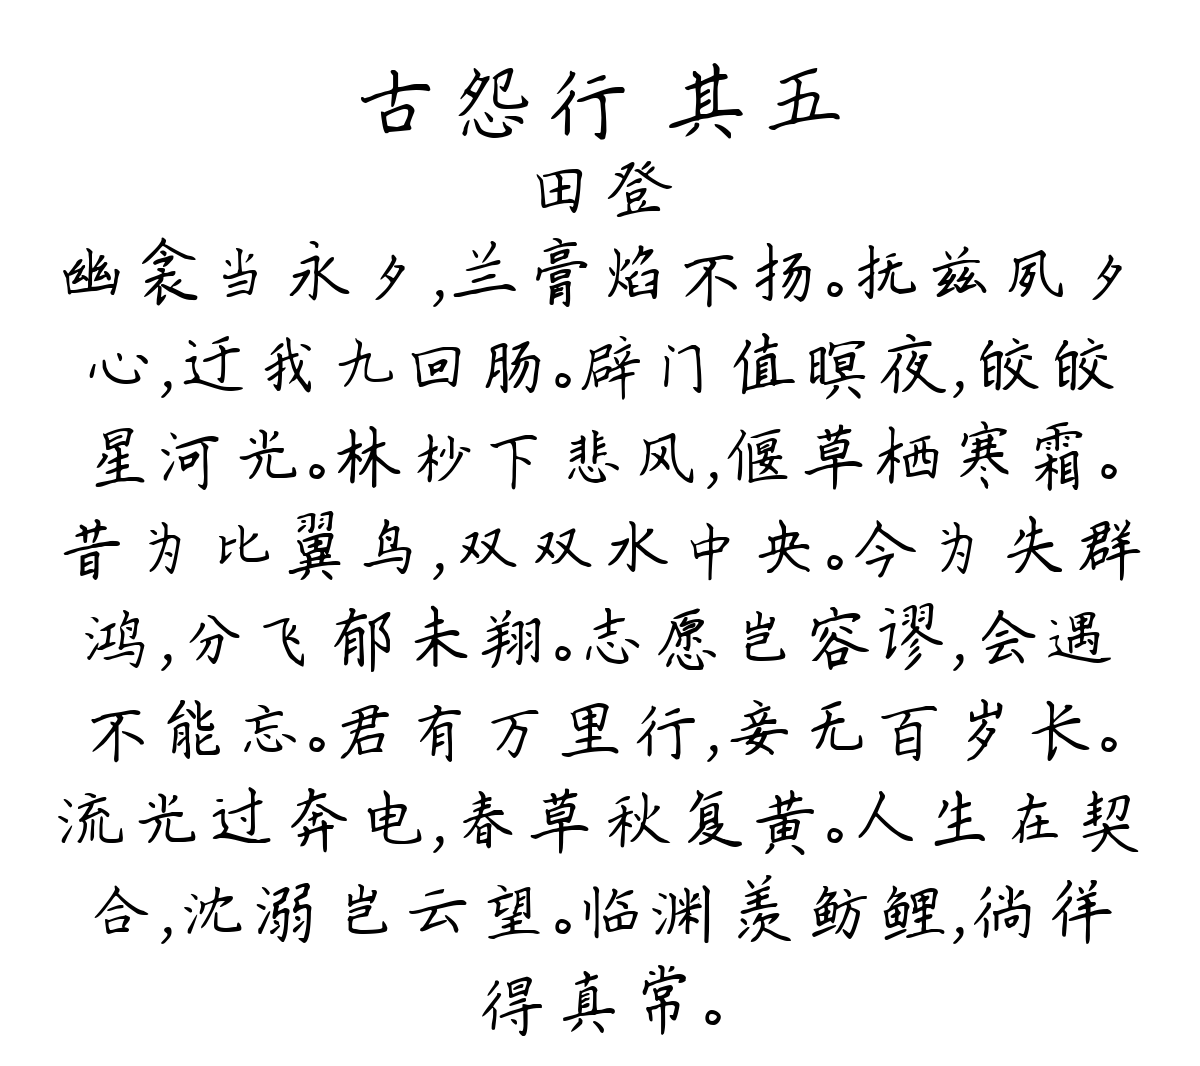 古怨行 其五
田登
幽衾当永夕,兰膏焰不扬。抚兹夙夕
心,迂我九回肠。辟门值暝夜,皎皎
星河光。林杪下悲风,偃草栖寒霜。
昔为比翼鸟,双双水中央。今为失群
鸿,分飞郁未翔。志愿岂容谬,会遇
不能忘。君有万里行,妾无百岁长。
流光过奔电,春草秋复黄。人生在契
合,沈溺岂云望。临渊羡鲂鲤,徜徉
得真常。